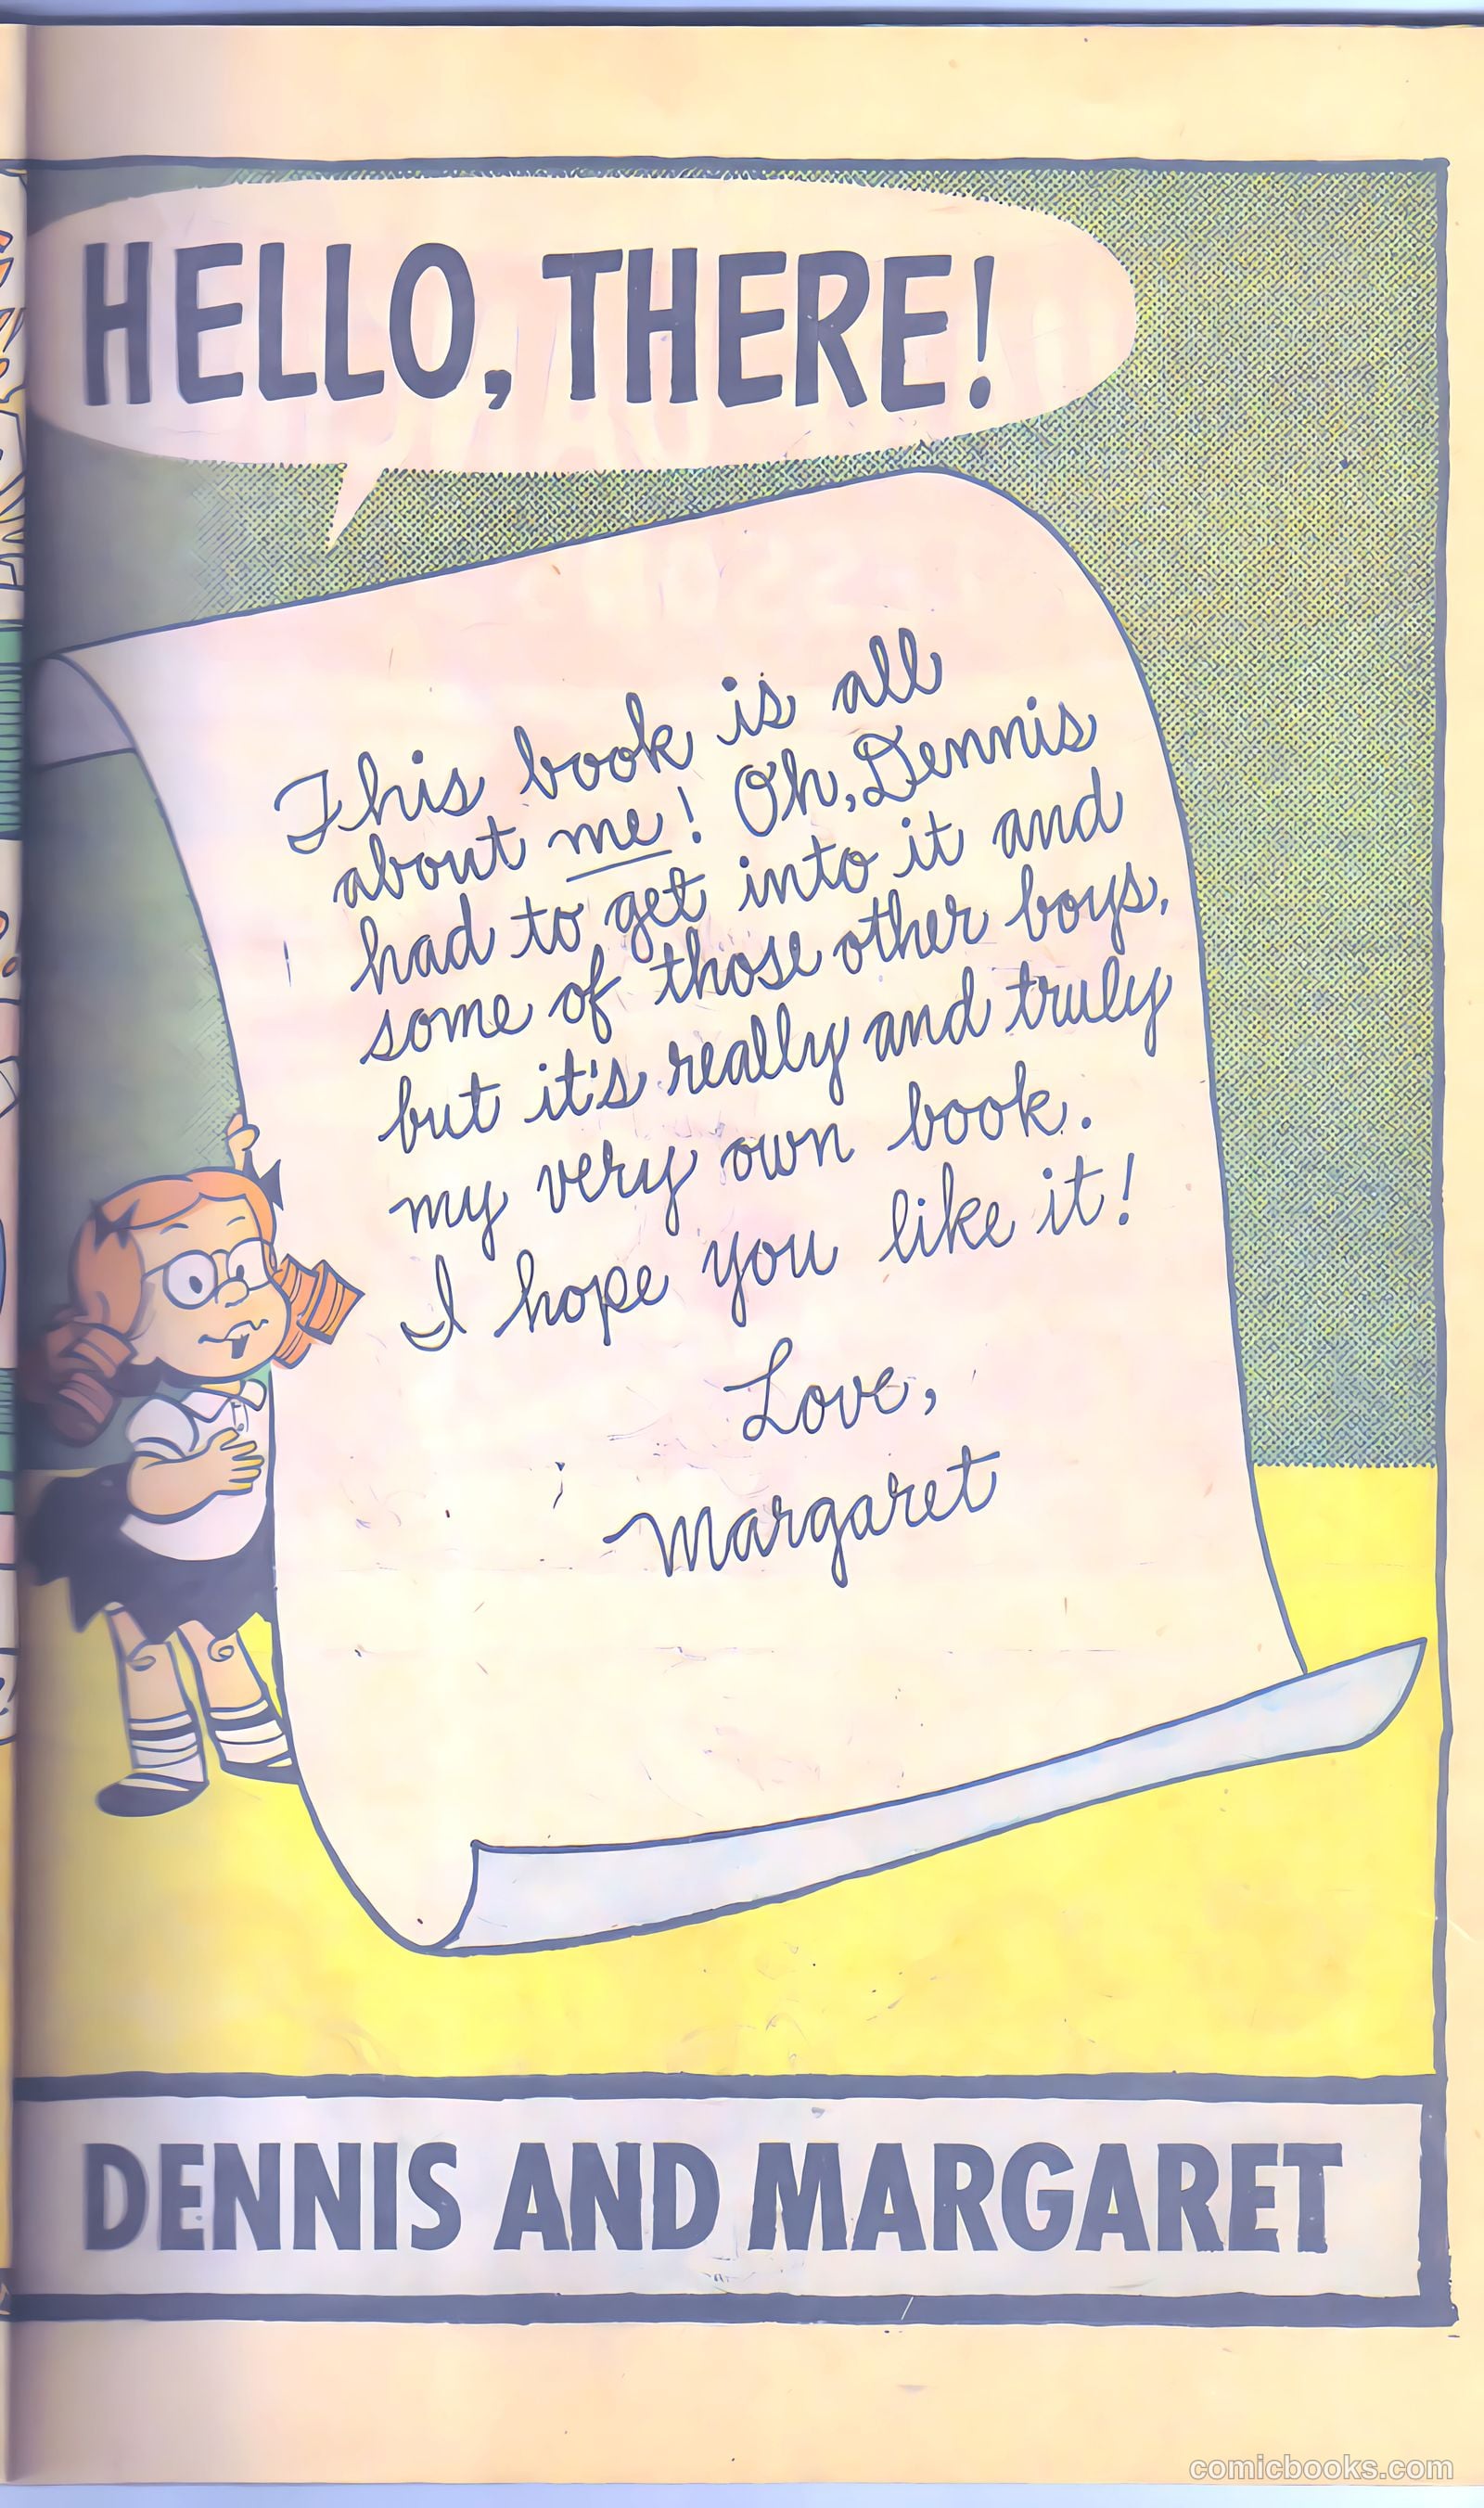 HELLO, THERE!
This book is all
about me! Oh, Dennis
had to get into it and
some of those other boys,
but it's really and truly
my very own book.
I hope you like it!
Love,
Margaret
DENNIS AND MARGARET
comicbooks.com